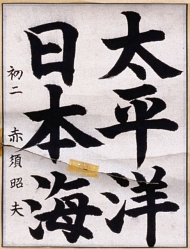 太平洋
日本海
初二 赤須昭夫